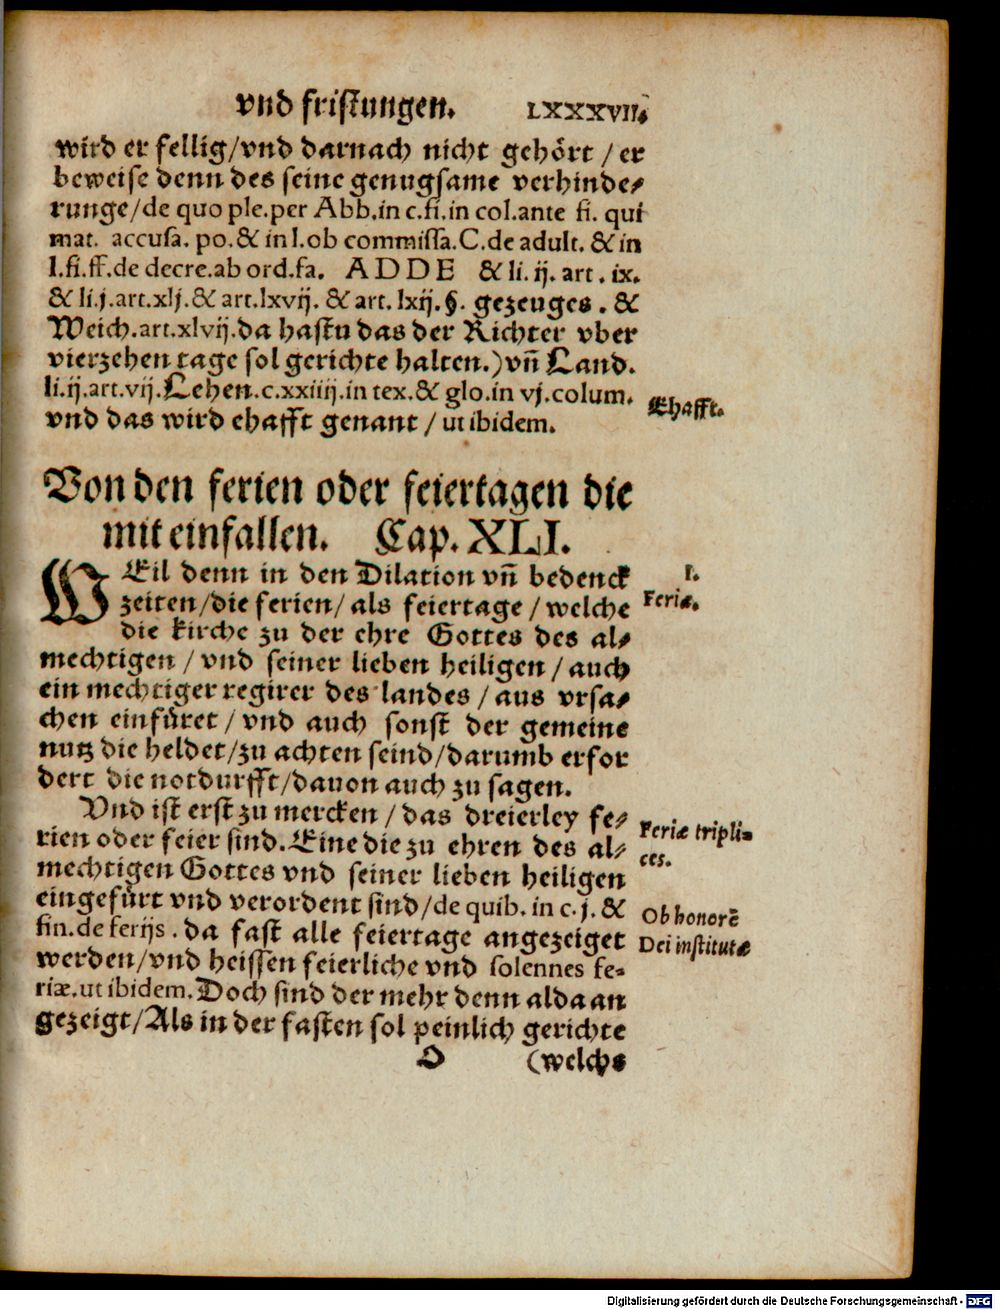 vnd fristungen. LXXXVII.
wird er fellig/vnd darnach nicht gehört / er
beweise denn des seine genugsame verhinde-
runge/de quo ple.per Abb.in c.fi.in col.ante fi. qui
mat. accusa. po.& in l.ob commissa.C.de adult. & in
l.fi.ff.de decre.ab ord.fa. ADDE & li. ij. art. ix.
& li.j.art.xlj.& art.lxvij. & art. lxij.§. gezeuges . &
Weich.art.xlvij.da hastu das der Richter vber
vierzehen tage sol gerichte halten.)vñ Land.
li.ij.art.vij.Lehen.c.xxiiij.in tex.& glo.in vj.colum.
vnd das wird ehafft genant / ut ibidem.
Ehafft.
Von den ferien oder feiertagen die
mit einfallen. Cap. XLI.
WEil denn in den Dilation vñ bedenck
zeiten/die ferien/ als feiertage / welche
die kirche zu der ehre Gottes des al-
mechtigen / vnd seiner lieben heiligen / auch
ein mechtiger regirer des landes / aus vrsa-
chen einfüret / vnd auch sonst der gemeine
nutz die heldet/zu achten seind/darumb erfor
dert die notdurfft/dauon auch zu sagen.
I.
Feriæ.
Vnd ist erst zu mercken / das dreierley fe-
rien oder feier sind.Eine die zu ehren des al-
mechtigen Gottes vnd seiner lieben heiligen
eingefürt vnd verordent sind/de quib. in c. j. &
fin.de ferijs . da fast alle feiertage angezeiget
werden/vnd heissen feierliche vnd solennes fe-
riæ.ut ibidem.Doch sind der mehr denn alda an
gezeigt/Als in der fasten sol peinlich gerichte
Feriæ tripli-
ces.
Ob honorē
Dei institutæ
O (welchs
Digitalisierung gefördert durch die Deutsche Forschungsgemeinschaft - DFG